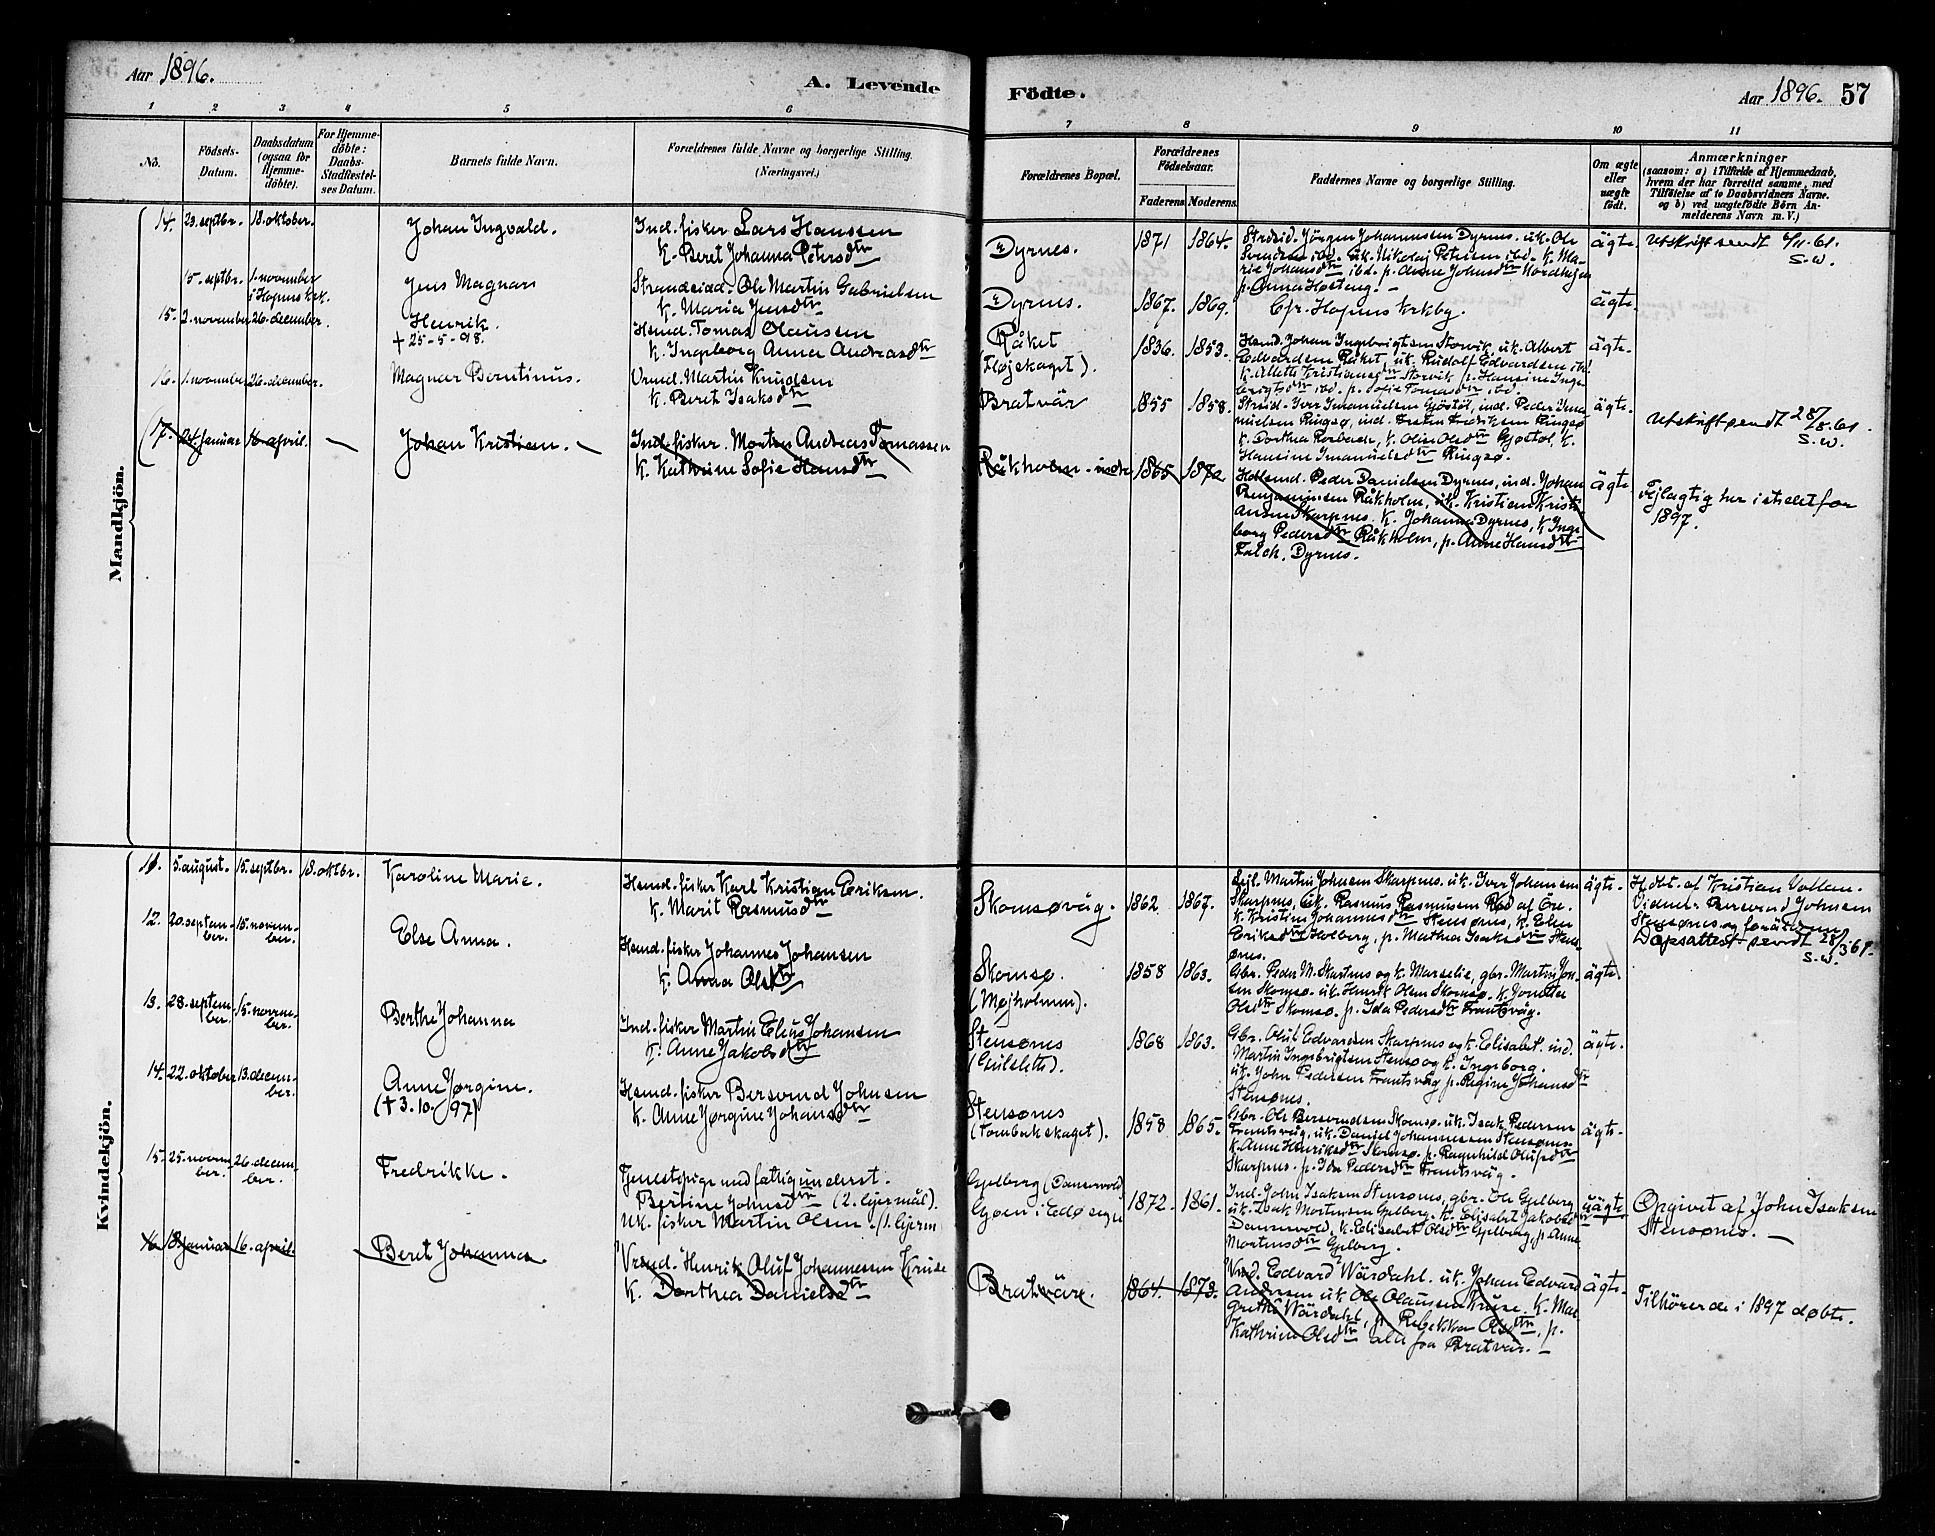 Aar 1896.
A. Levende
Födte.
Aar 1896. 57
1 2 3 4 5 6
7 8 9 10 11
No.
Födsels-
Datum.
Daabsdatum
(ogsaa for
Hjemme-
döbte).
For Hjemme-
döbte:
Daabs-
Stadfæstel-
ses Datum.
Barnets fulde Navn.
Forældrenes fulde Navne og borgerlige Stilling.
(Næringsvei.)
Forældrenes Bopæl.
Forældrenes
Födselsaar.
Faderens Moderens
Faddernes Navne og borgerlige Stilling.
Om ægte
eller
uægte
födt.
Anmærkninger
(saasom: a) i Tilfælde af Hjemmedaab,
hvem der har forrettet samme, med
Tilföielse af to Daabsvidners Navne.
og b) ved uægtefödte Börn An-
melderens Navn m. V.)
Mandkjön.
14. 23. septbr. 18. oktober.
Johan Ingvald.
Ind. fisker Lars Hanssen
k. Beret Johanna Petersdtr
Dyrnes.
1871 1864.
Strdsid. Jörgen Johannesen Dyrnes. uk. Ole
Svendsen ibd. uk. Nikolaj Petersen ibd. k. Ma-
rie Johansdtr ibd. p. Anne Johnsdtr
p. Anna
ägte.
Utskrift sendt 6/11-61.
S.W.
15. septbr. 1. november
i Hopens krk.
Jens Magnar
Strandsidd. Ole Martin Gabrielsen
k. Maria Jensdtr
Dyrnes.
1867. 1869.
Cfr. Hopens krkbg.
ägte.
15. 2. november 26. december.
Henrik.
† 25-5-98.
Hsmd. Tomas Olaussen
k. Ingeborg Anna Andreasdtr
Råket
(Fløjskaget).
1836. 1853.
Hsmd. Johan Ingebrigtsen Storvik, uk. Albert
Edvardsen Råket, uk. Rudolf Edvardsen ibd.
k. Alette Kristiansdtr Storvik p. Hansine Inge-
brigtsdtr ibd. p. Sofie Tomasdtr ibd.
ägte.
16. 1. november 26. december.
Magnar Berntinus.
Vrmd. Martin Knudsen
k. Beret Isaksdtr
Bratvär
1855 1858.
Strsid. Iver Imanuelsen Gjøstøl, ind. Peder Ima-
nuelsen Ringsø, ind. Fredriksen Ringsø
k. Dorthea k. Oline Olsdtr Gjøstøl, k.
Hansine Imanuelsdtr Ringsø.
ägte.
Utskrift sendt 28/8.61.
S.W.
(17. 24. januar 16. april.
Johan Kristian.
Ind. fisker. Morten Andreas Tomassen
k. Kathrine Sofie Hansdtr
Råkholm-indre
1865 1872
Peder Danielsen Dyrnes, ind. Johan
Benjaminsen Råkholm, uk. Kristian Kristi-
ansen Skarpnes. k. Johanna Dyrnes, k. Inge-
borg Pedersdtr Råkholm, p. Anne Hansdtr
Falch, Dyrnes.
ägte
Fejlagtig her istedetfor
1897.
Kvindekjön.
11. 5. august. 15. septbr. 18. oktbr.
Karoline Marie.
Hsmd. fisker Karl Kristian Eriksen.
k. Marit Rasmusdtr
Skomsøvåg.
1862 1867.
Sejl. Martin Johnsen Skarpnes. uk. Iver Johansen
Skarpnes, uk. Rasmus Rasmussen Rød af Öre.
k. Kristine Johannesdtr Stensønes, k. Elen
Eriksdtr Holberg, p. Mathea Isaksdtr Stens-
ønes.
ägte.
H. dbt. af Kristian Vollan.
Vidner: Bersvend Johnsen
Stensønes og forældrene
Dåpsattest sendt 28/3 61.
S.W.
12. 20. septem-
ber. 15. novem-
ber.
Else Anna.
Hsmd. fisker Johannes Johansen
k. Anna Olsdtr
Skomsø.
(Møjholmen).
1858 1863.
Gbr. Peder M. Skarpnes og k. Marselie, gbr. Martin Joh-
sen Skomsø. uk. Henrik Olsen Skomsø. k.
Olsdtr Skomsø. p. Ida Pedersdtr Frantsvåg.
ägte
13. 28. septem-
ber. 15. novem-
ber.
Berthe Johanna
Ind. fisker Martin Elius Johansen
k. Anne Jakobsdtr
Stensønes
1868 1863.
Gbr. Oluf Edvardsen Skarpnes og k. Elisabet. ind.
Martin Ingebrigtsen Stensø og k. Ingeborg.
uk. John Pedersen Frantsvåg p. Regine Johansdtr
Stensønes.
ägte.
14. 22. oktober 13. decem-
ber.
Anne Jørgine.
(† 3.10. 97)
Hsmd. fisker Bersvend Johnsen
k. Anne Jørgine Johansdtr
Stensønes
(Tombakskaget).
1858 1865.
Gbr. Ole Bersvendsen Skomsø. uk. Isak Pedersen
Frantsvåg, uk. Daniel Johannessen Stensønes.
k. Anne Henriksdtr Skomsø. p. Ragnhild Olufsdtr
Skarpnes. p. Ida Pedersdtr Frantsvåg.
ägte.
15. 25. novem-
ber. 26. decem-
ber.
Fredrikke.
Tjenestepige med fattigunderst.
Bertine Johnsdtr (2. lejermål).
Uk. fisker Martin Olsen. (1. lejerm
Gjelberg (Dannevold)
i Edø sogn
1872. 1861.
Ind. John Isaksen Stensønes, gbr. Ole Gjelberg
uk. Isak Mortensen Gjelberg. k. Elisabet Jakobsdtr
Dannevold. k. Elisabet Olsdtr Gjelberg, p. Anne
Mortensdtr Gjelberg.
uägte
Opgivet af John Isaksen
Stensønes.
16. 18. januar 16. april.
Beret Johanna
Vrmd. Henrik Oluf Johannessen Kruse
k. Dorthea Danielsdtr
Bratväre.
1864. 1873.
Vrmd. Edvard Wärdahl. uk. Johan Edvard
Andersen uk. Ole Olaussen Kruse. k. Mar-
grethe Wärdahl, p. Rebekka Olsdtr. p.
Kathrine Olsdtr alle fra Bratvär.
ägte.
Tilhører de i 1897 døbte.